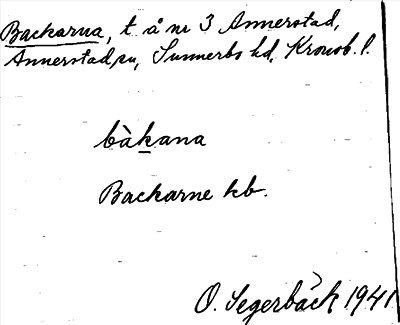 Backarna, t å nr 3 Annerstad,
Annerstad sn, Sunnerbo hd, Kronob. l.
bàkana
Backarne kb.
O. Segerbäck 1941